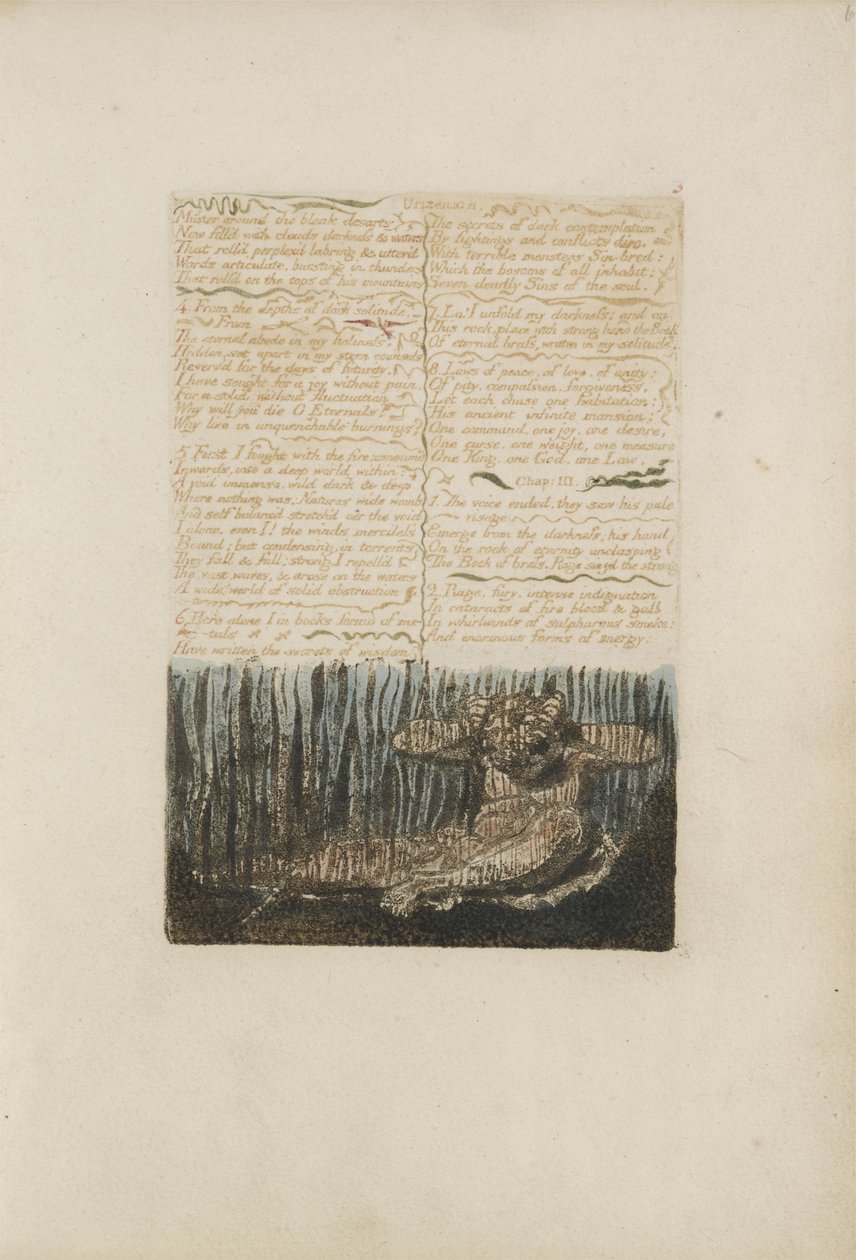 Urizen: II.
Muster around the bleak desarts
Now fill'd with clouds, darkness & waters
That roll'd perplex'd labring & utter'd
Words articulate, bursting in thunders
That roll'd on the tops of his mountains
4. From the depths of dark solitude.
From
The eternal abode in my holiness,
Hidden, set apart in my stern counsels
Reserv'd for the days of futurity,
I have sought for a joy without pain,
For a solid without fluctuation
Why will you die O Eternals?
Why live in unquenchable burnings?
5 First I fought with the fire; consum'd
Inwards, into a deep world within:
A void immense, wild dark & deep,
Where nothing was; Natures wide womb
And self balanc'd stretch'd o'er the void
I alone, even I! the winds merciless
Bound; but condensing, in torrents
They fall & fall; strong, I repell'd
The vast waves, & arose on the waters
A wide world of solid obstruction
6. Here alone I in books form'd of me-
-tals
Have written the secrets of wisdom
The secrets of dark contemplation
By fightings and conflicts dire,
With terrible monsters Sin-bred:
Which the bosoms of all inhabit;
Seven deadly Sins of the soul.
7. Lo! I unfold my darkness: and on
This rock, place with strong hand the Book
Of eternal brass, written in my solitude.
8. Laws of peace, of love, of unity:
Of pity, compassion, forgiveness.
Let each chuse one habitation:
His ancient infinite mansion:
One command, one joy, one desire,
One curse, one weight, one measure
One King, one God, one Law.
Chap: III.
1. The voice ended, they saw his pale
visage
Emerge from the darkness; his hand
On the rock of eternity unclasping
The Book of brass. Rage siez'd the strong
2. Rage, fury, intense indignation
In cataracts of fire blood & gall
In whirlwinds of sulphurous smoke:
And enormous forms of energy;
6